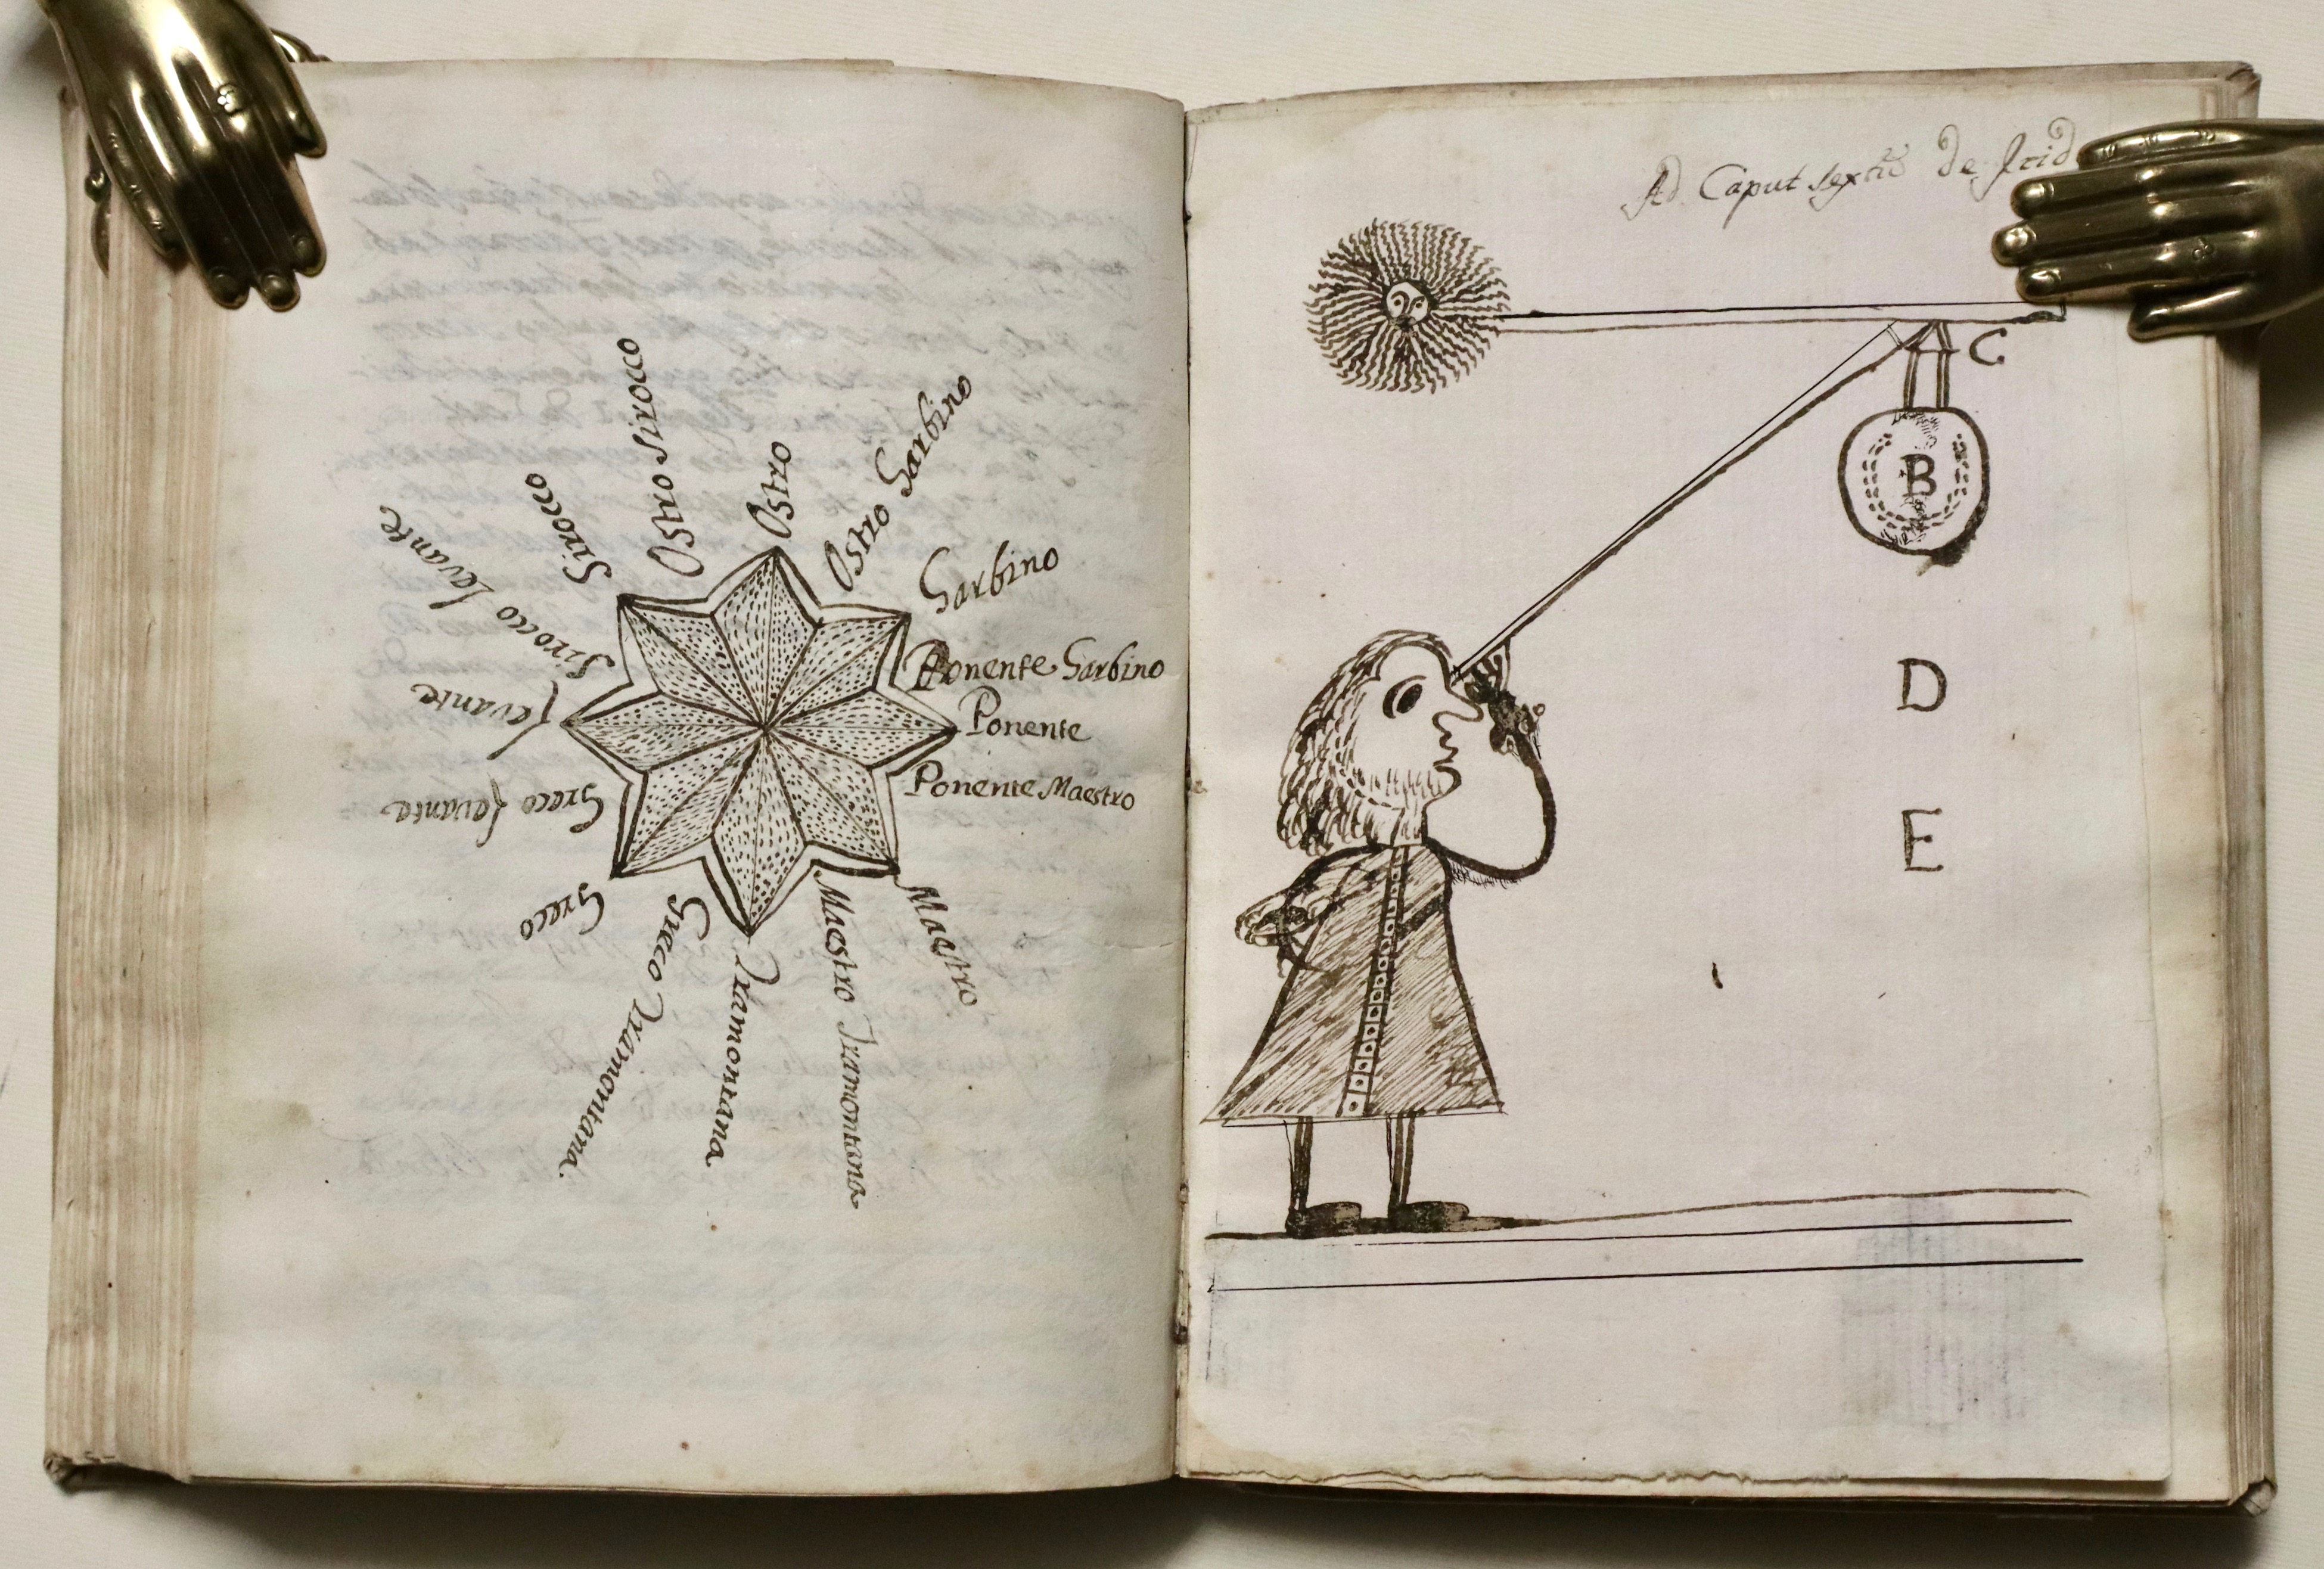 Ostro
Ostro Garbino
Garbino
Ponente Garbino
Ponente
Ponente Maestro
Maestro
Maestro Tramontana
Tramontana
Greco Tramontana
Greco
Greco Levante
Levante
Sirocco Levante
Sirocco
Ostro Sirocco
Ad Caput sextũ De Irid
C
B
D
E